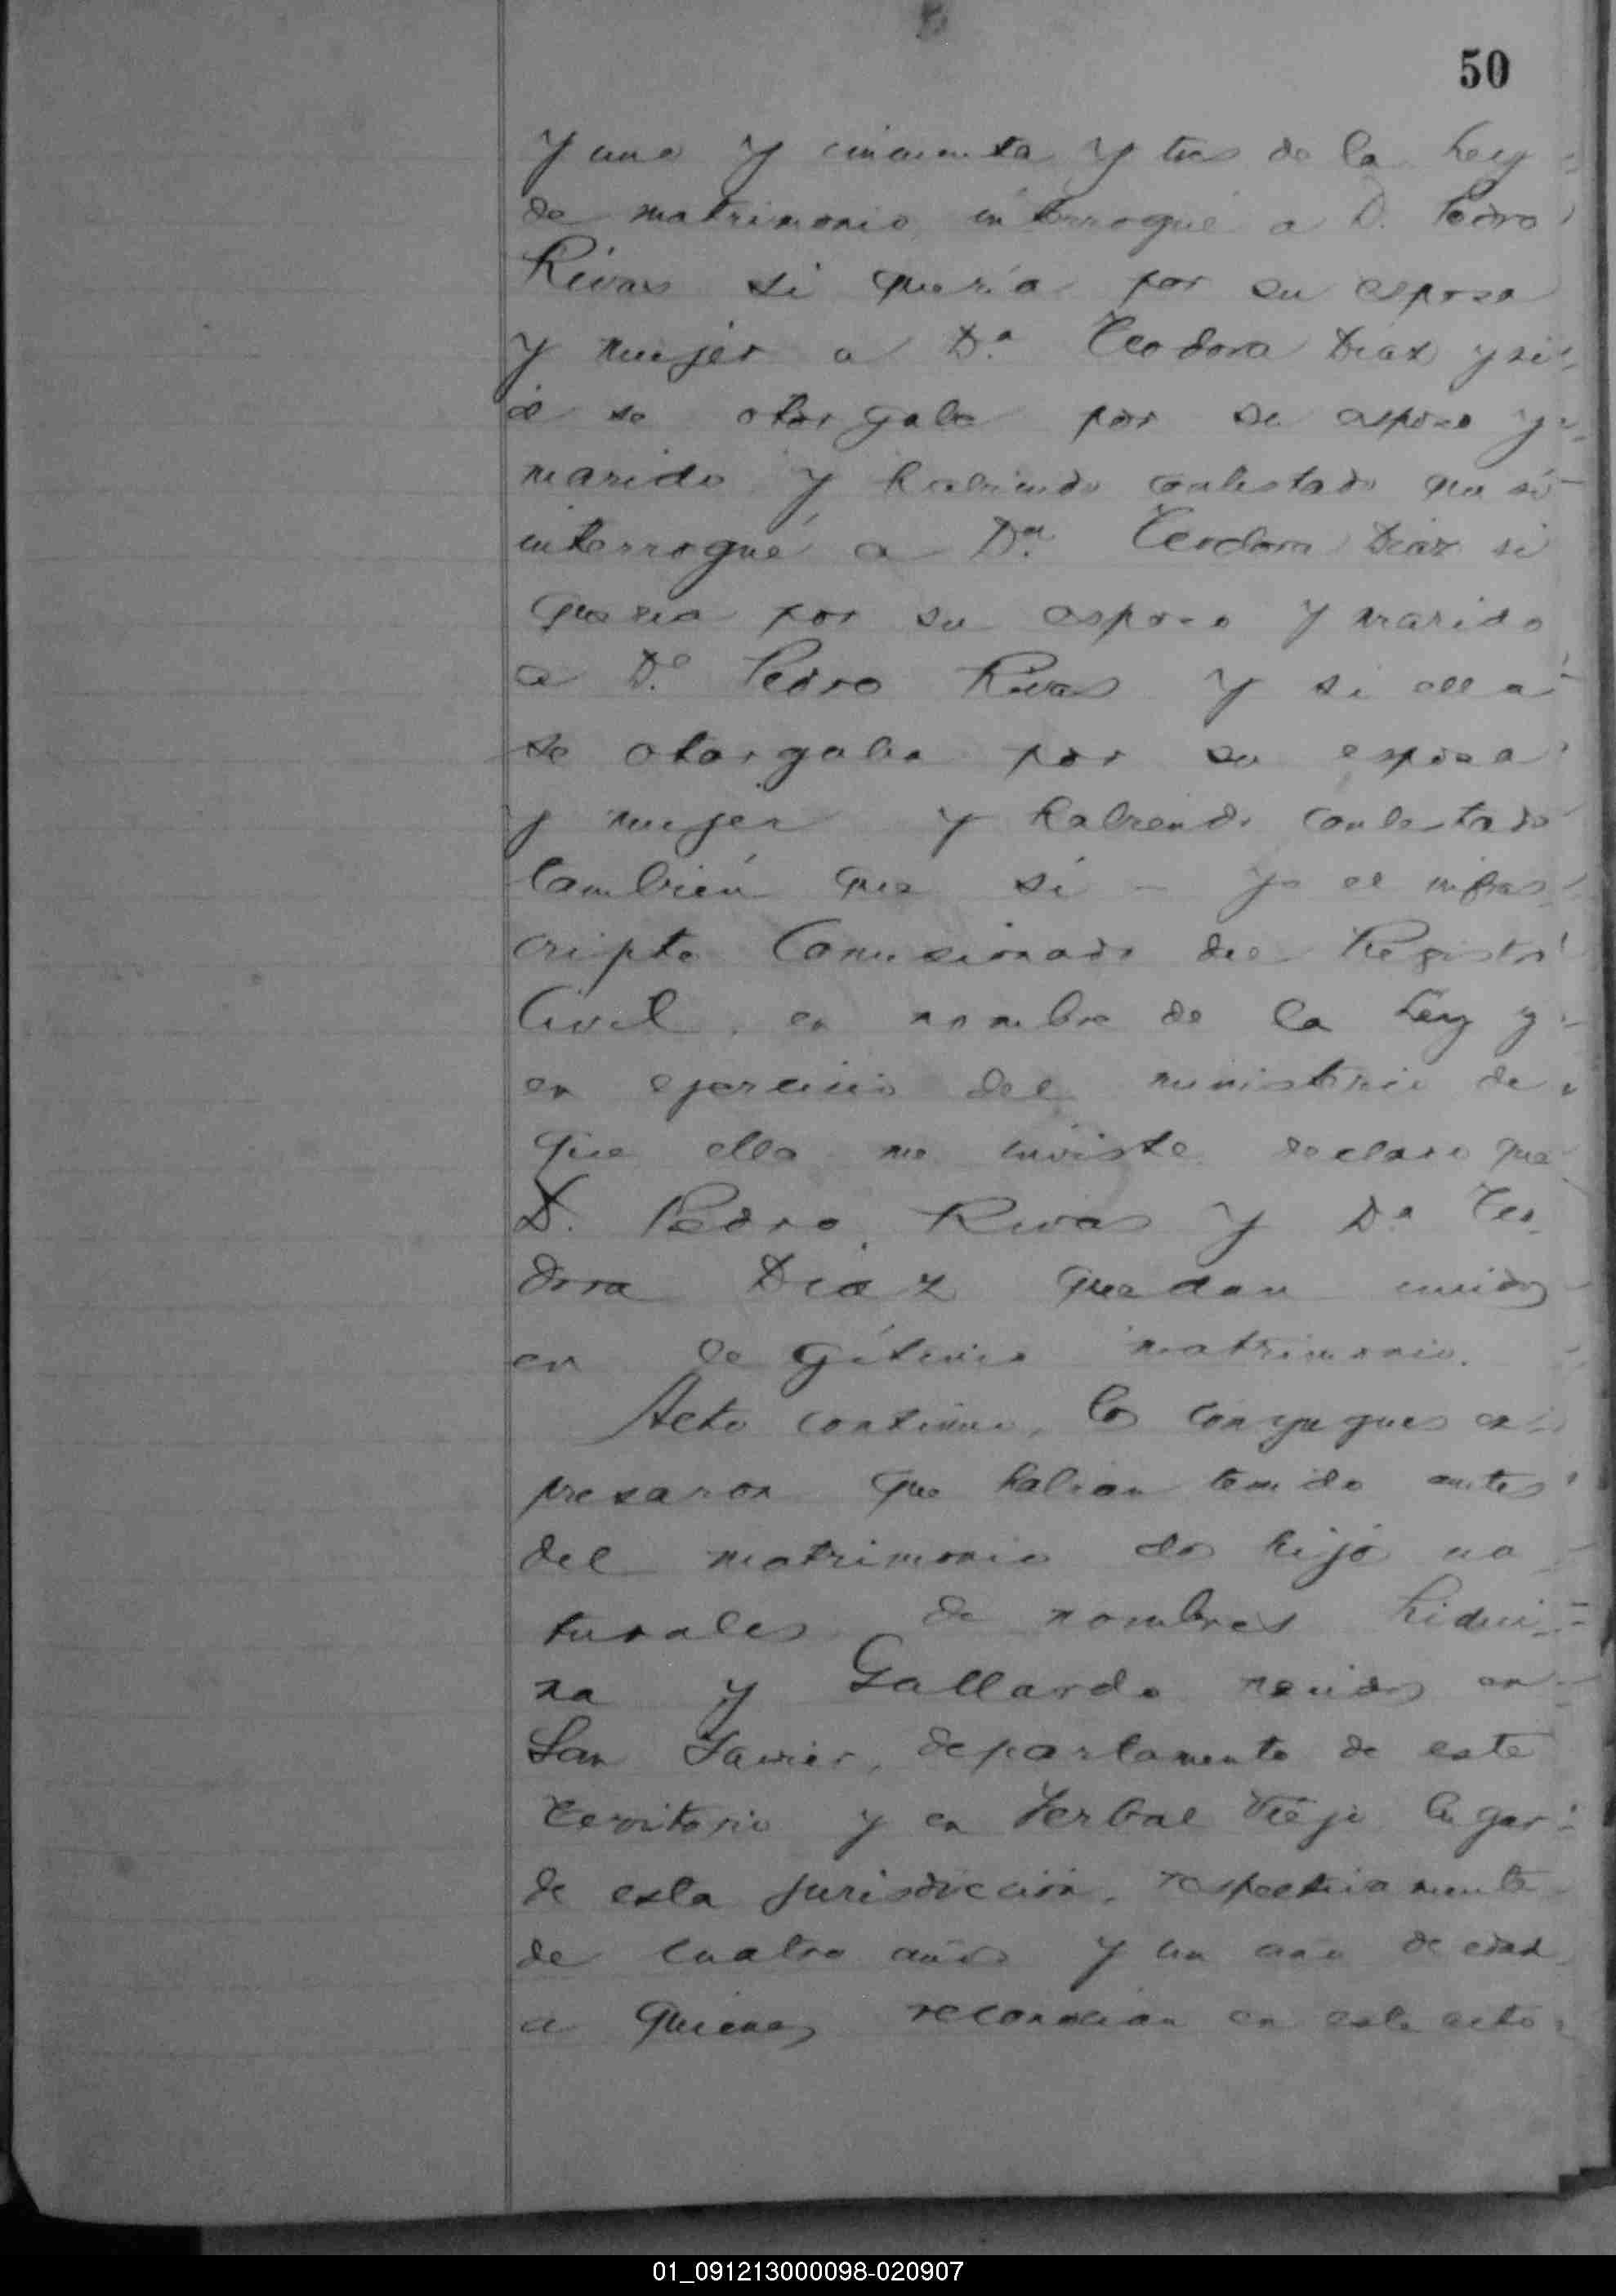 50
y uno y cincuenta y tres de la Ley
de matrimonio, interrogué a D. Pedro
Rivas si quería por su esposa
y mujer a Da. Teodora Diaz y si
él se otorgaba por su esposo y
marido y habiendo contestado que sí
interrogué a Da. Teodora Diaz si
queria por su esposo y marido
a Do. Pedro Rivas y si ella
se otorgaba por su esposa
y mujer y habiendo contestado
también que sí – yo el infras-
cripto Comisionado del Registro
Civil, en nombre de la Ley y
en ejercicio del ministerio de
que ella me inviste declaro que
D. Pedro Rivas y Da Teo-
dora Diaz quedan unidos
en legítimo matrimonio.
Acto continuo, los conyugues ex-
presaron que habian tenido antes
del matrimonio dos hijos na-
turales de nombres
na y Gallardo nacidos en
San Javier, departamento de este
Territorio y en Yerbal Viejo lugar
de esta jurisdicción, respectivamente
de cuatro años y un año de edad
a quienes reconocian en este acto
01_091213000098-020907